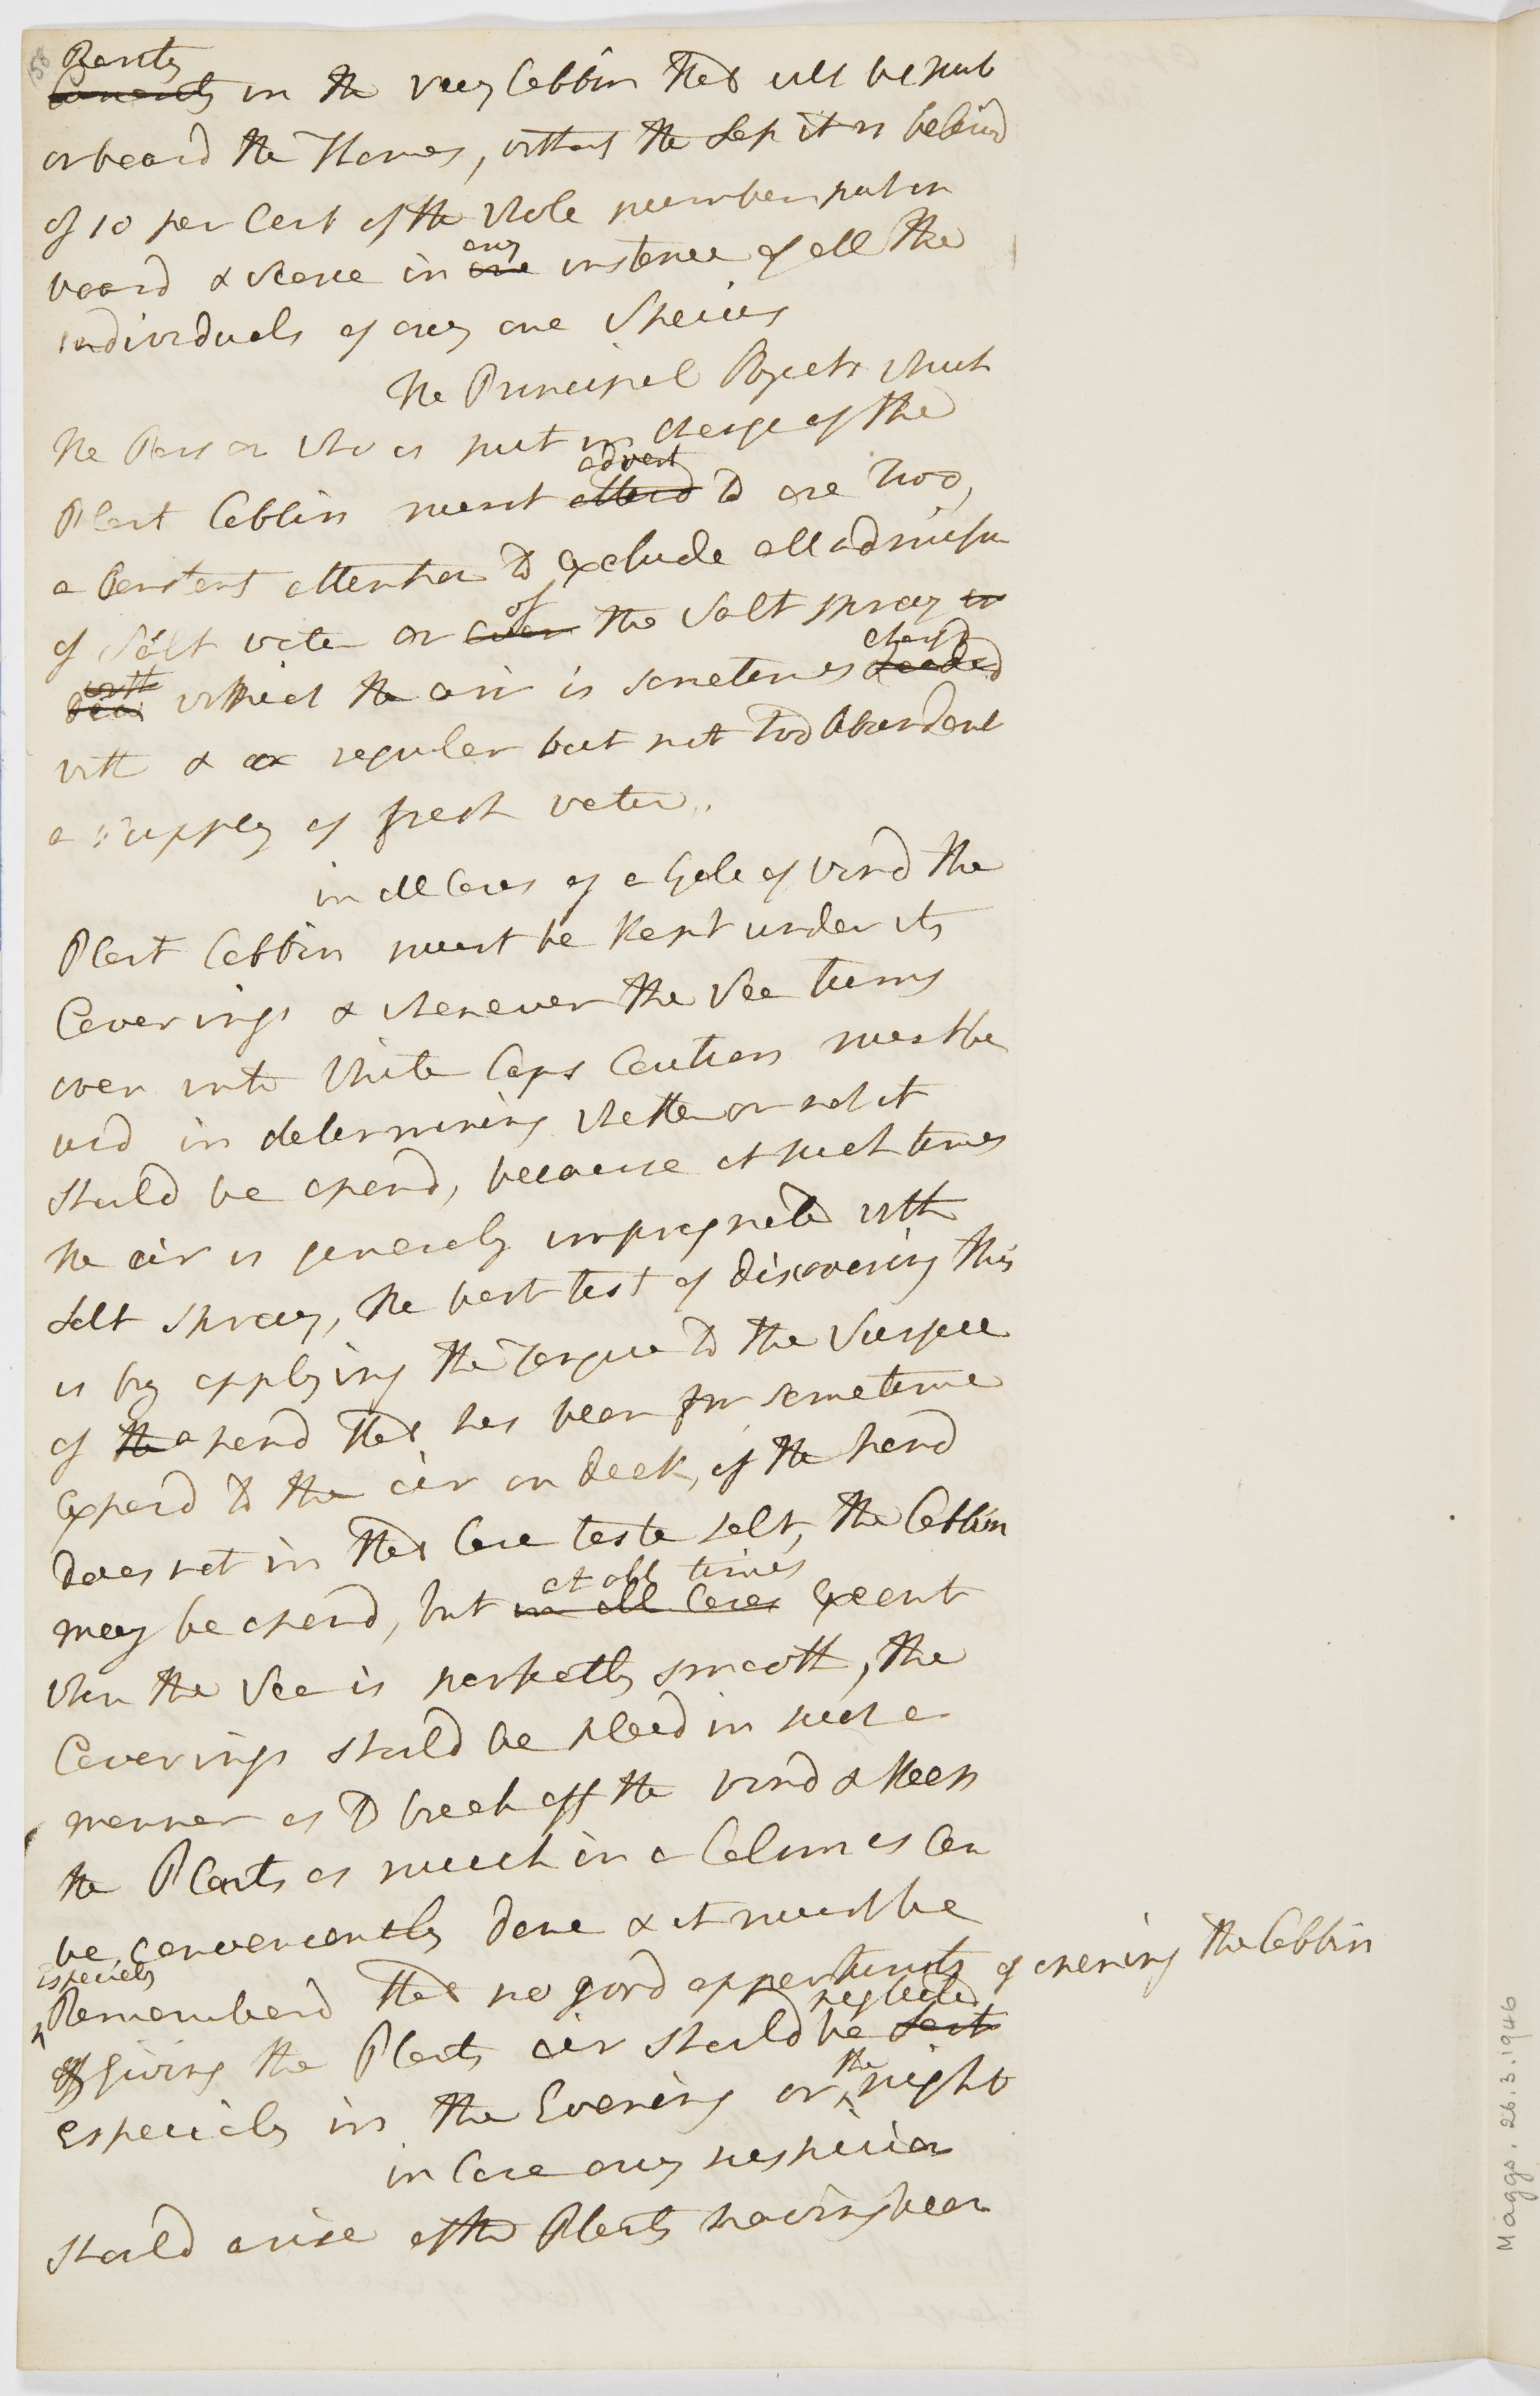 Plants
in the very Cabbin that will be put
on board the Thames, without the Loss it is beleivd
of 10 per Cent of the whole number put on
board & scarce in any one instance of all the
individuals of any one Species
The Principal Objects which
the Person who is put in charge of the
Plant Cabbin must advert attend to are two,
a Constant attention to exclude all admission
of Salt water or of even the Salt spray
with which the air is sometimes chargd loaded
with & a regular but not too abundant
a supply of fresh water.
in all Cases of a Gale of wind the
Plant Cabbin must be Kept under its
Coverings & whenever the Sea turns
over into White Caps Caution must be
usd in determining whether or not it
should be opend, because at such times
the air is generaly impregnated with
Salt Spray, the best test of discovering this
is by applying the Tongue to the Surface
of the a hand that has been for sometime
Exposd to the air on deck, if the hand
does not in that Case taste salt, the Cabbin
may be opend, but at all times in all Cases Except
when the Sea is perfectly smooth, the
Coverings should be placd in such a
manner as to break off the wind & Keep
the Plants as much in a Calm as Can
be conveniently done & it must be
especialy Rememberd that no good opportunity of opening the Cabbin
& giving the Plants air should be neglected lost
Especialy in the Evening or the night
in Case any suspicion
should arise of the Plants having been
Maggs. 26.3.1946